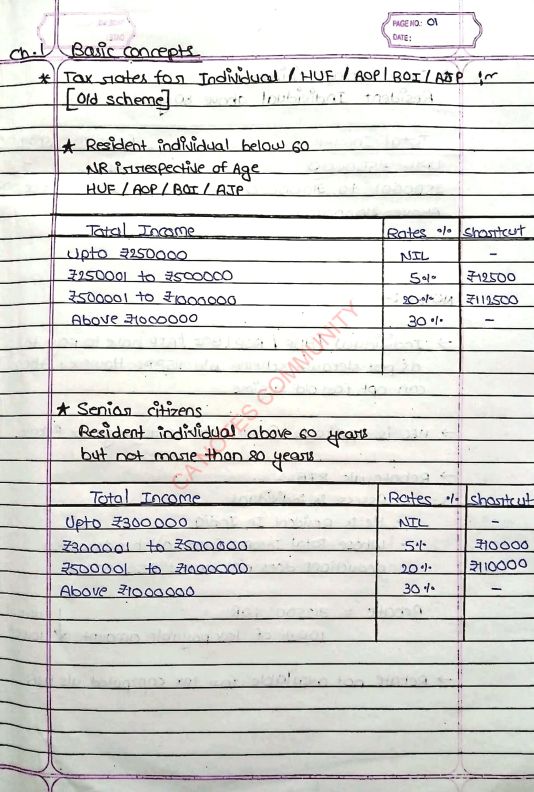 PAGE NO.: 01
DATE:
Ch.1 Basic concepts
* Tax rates for Individual / HUF / AOP / BOI / AJP :~
[Old scheme]
★ Resident individual below 60
NR irrespective of Age
HUF / AOP / BOI / AJP
Total Income Rates % Shortcut
Upto ₹250000 NIL -
₹250001 to ₹500000 5% ₹12500
₹500001 to ₹1000000 20% ₹112500
Above ₹1000000 30% -
★ Senior citizens
Resident individual above 60 years
but not more than 80 years
Total Income Rates % Shortcut
Upto ₹300000 NIL -
₹300001 to ₹500000 5% ₹10000
₹500001 to ₹1000000 20% ₹110000
Above ₹1000000 30% -
CA NOTES COMMUNITY